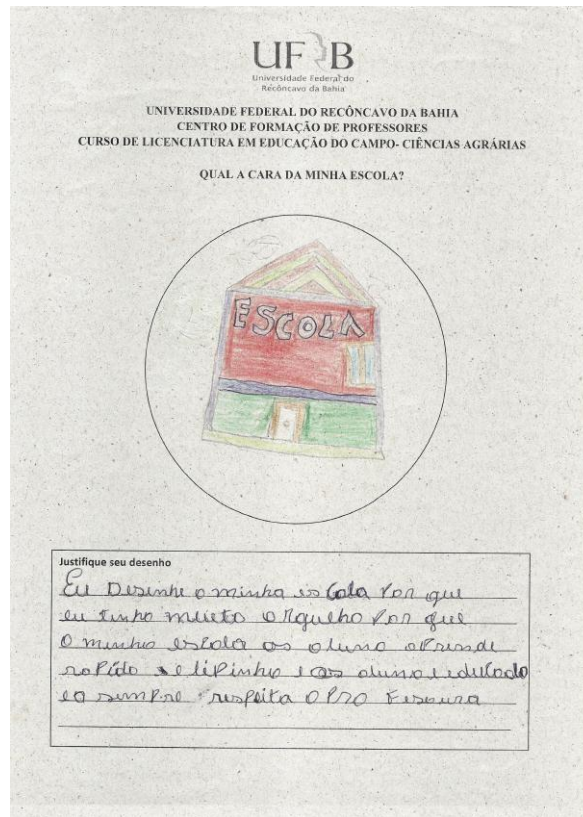 UFRB
Universidade Federal do
Recôncavo da Bahia
UNIVERSIDADE FEDERAL DO RECÔNCAVO DA BAHIA
CENTRO DE FORMAÇÃO DE PROFESSORES
CURSO DE LICENCIATURA EM EDUCAÇÃO DO CAMPO- CIÊNCIAS AGRÁRIAS
QUAL A CARA DA MINHA ESCOLA?
ESCOLA
Justifique seu desenho
Eu Desenhe o minha escola Por que
eu tinho muito orguelho Por que
O minho escola os aluno aprende
rapido e lipinho e os aluno e educado
e a sempre respeita O Pro Fessura